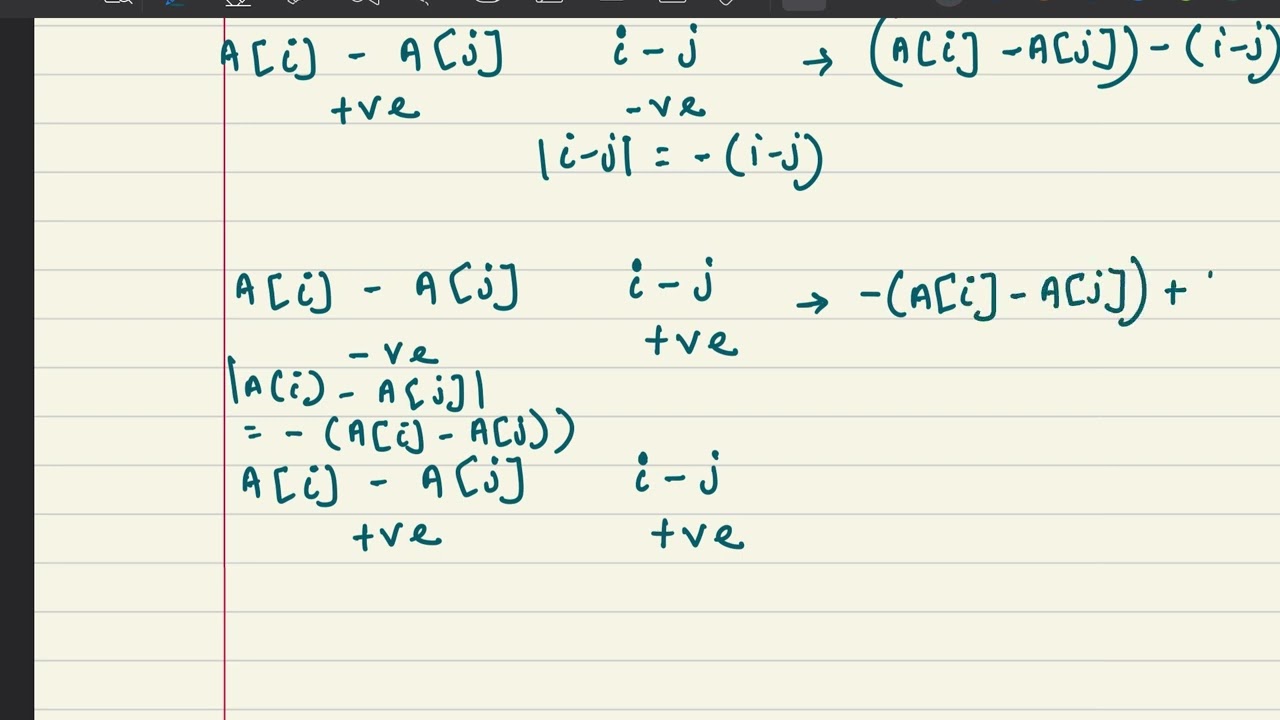 A[i] - A[j] i - j → (A[i] - A[j]) - (i-j)
+ve -ve
|i-j| = - (i-j)
A[i] - A[j] i - j → -(A[i] - A[j]) +
- ve +ve
|A(i) - A[j]|
= - (A[i] - A[j))
A[i] - A[j] i - j
+ve +ve